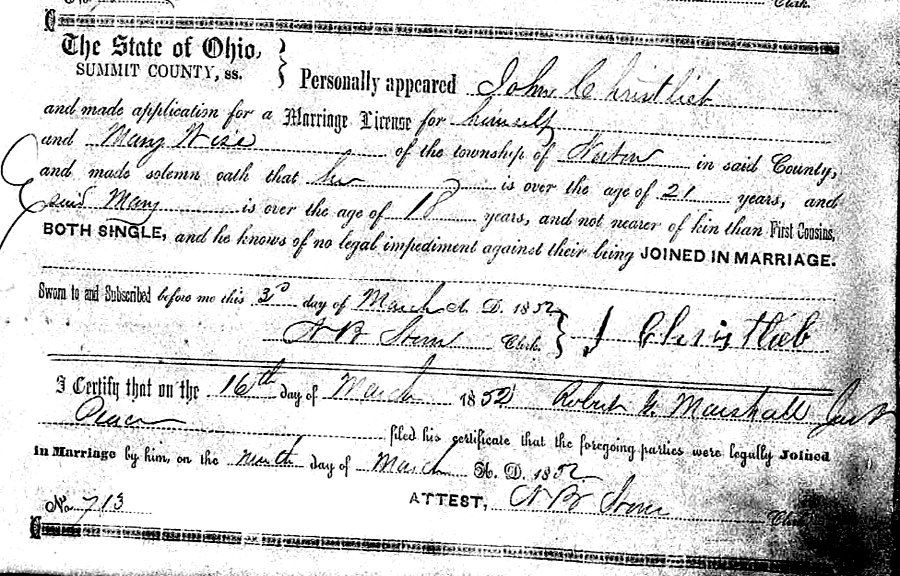 Clerk.
The State of Ohio,
SUMMIT COUNTY, ss. } Personally appeared John Christlieb
and made application for a Marriage License for himself
and Mary Wise of the township of Norton in said County,
and made solemn oath that he is over the age of 21 years, and
said Mary is over the age of 18 years, and not nearer of kin than First Cousins,
BOTH SINGLE, and he knows of no legal impediment against their being JOINED IN MARRIAGE.
Sworn to and Subscribed before me this 3d day of March A. D. 1852
N B Stone Clerk. } J Christlieb
I Certify that on the 16th day of March 1852 Robert G. Marshall Just
Peace filed his certificate that the foregoing parties were legally Joined
in Marriage by him, on the ninth day of March A. D. 1852.
No. 713 ATTEST, N B Stone Clerk